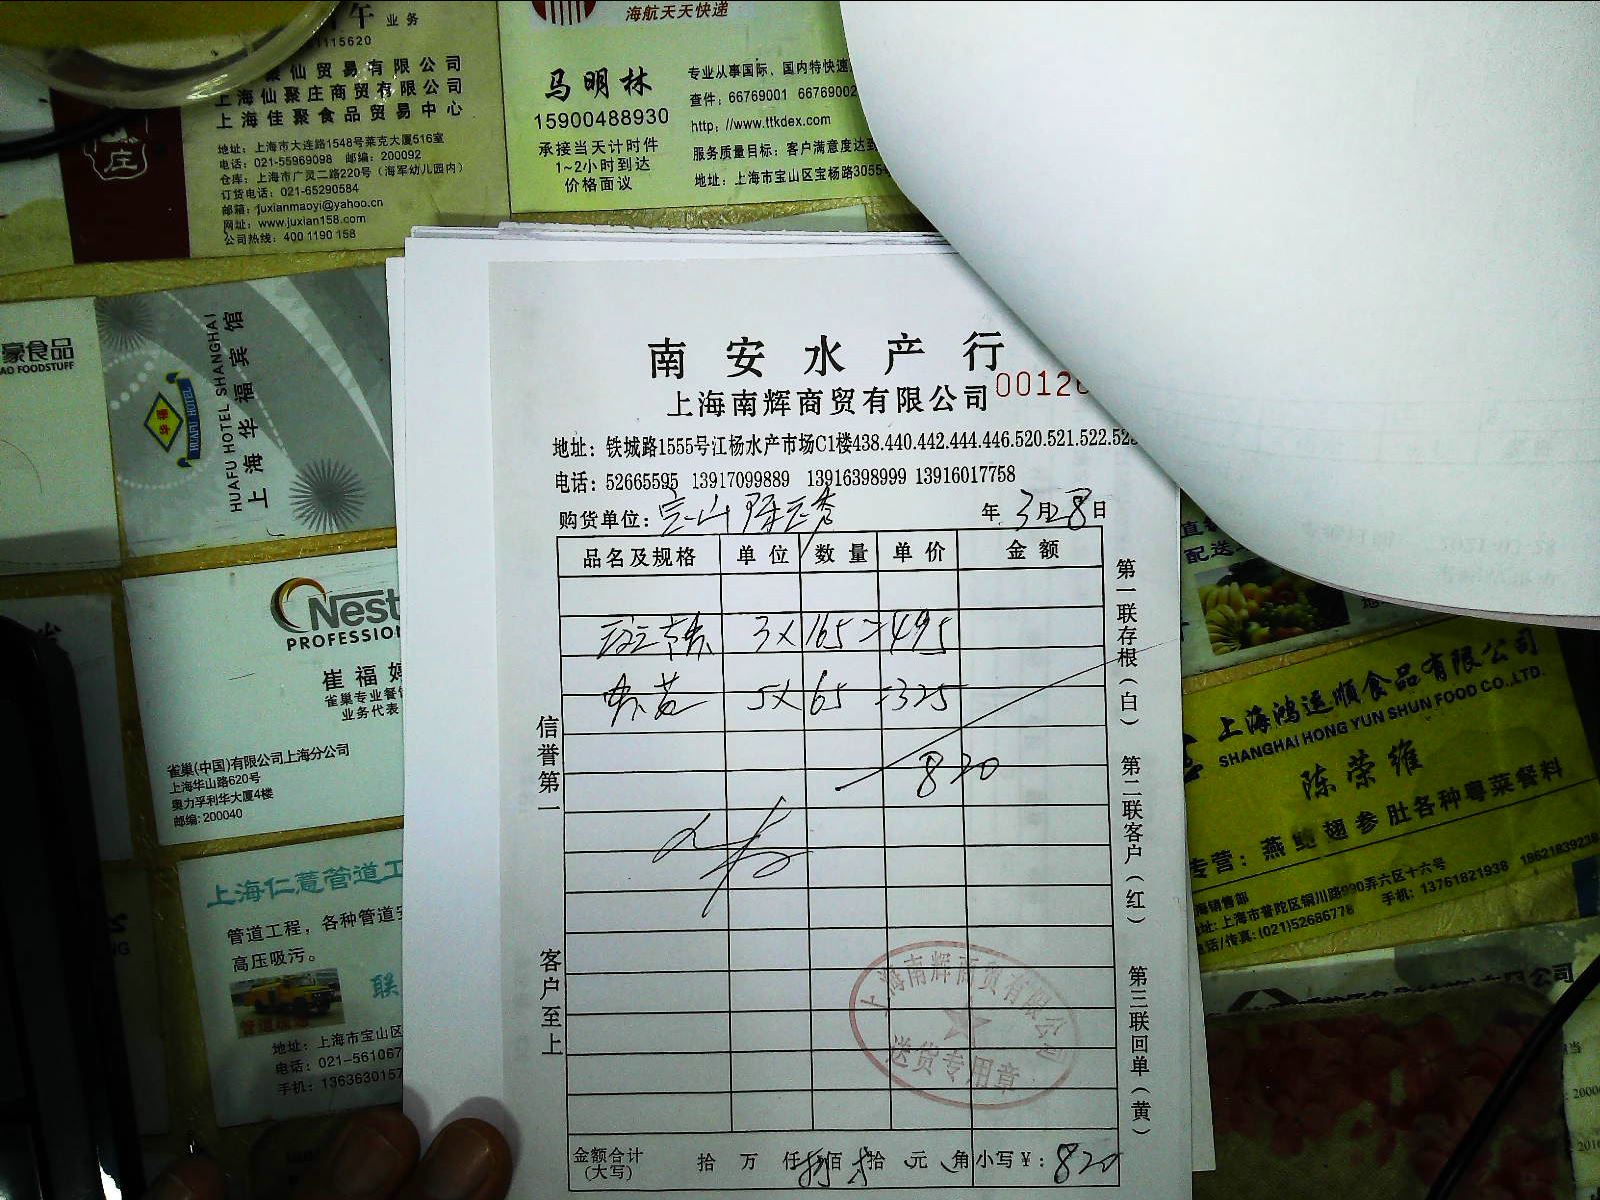 午 业务
115620
聚仙贸易有限公司
上海仙聚庄商贸有限公司
上海佳聚食品贸易中心
地址：上海市大连路1548号莱克大厦516室
电话：021-55969098 邮编：200092
仓库：上海市广灵二路220号（海军幼儿园内）
订货电话：021-65290584
邮箱：juxianmaoyi@yahoo.cn
网址：www.juxian158.com
公司热线：400 1190 158
庄
海航天天快递
马明林
15900488930
承接当天计时件
1~2小时到达
价格面议
专业从事国际、国内特快速
查件：66769001 66769002
http：//www.ttkdex.com
服务质量目标：客户满意度达到
地址：上海市宝山区宝杨路3055
豪食品
AO FOODSTUFF
HUAFU HOTEL
HUAFU HOTEL SHANGHAI
上海华福宾馆
Nest
PROFESSION
崔福婷
雀巢专业餐饮
业务代表
雀巢(中国)有限公司上海分公司
上海华山路620号
奥力孚利华大厦4楼
邮编：200040
上海仁薏管道工
管道工程，各种管道安
高压吸污。
联
管道疏通
地址：上海市宝山区
电话：021-561067
手机：1363630157
南安水产行
上海南辉商贸有限公司 00126
地址：铁城路1555号江杨水产市场C1楼438.440.442.444.446.520.521.522.523
电话：52665595 13917099889 13916398999 13916017758
购货单位：宝山 年 3月28日
品名及规格 单位 数量 单价 金额
3×165=495
5×65=325
820
信誉第一
客户至上
第一联存根（白）
第二联客户（红）
第三联回单（黄）
上海南辉商贸有限公司
送货专用章
金额合计
(大写) 拾 万 仟 捌佰 贰拾 元 角 小写￥：820
直
配送
上海鸿运顺食品有限公司
SHANGHAI HONG YUN SHUN FOOD CO.,LTD.
陈荣维
专营：燕鲍翅参肚各种粤菜餐料
海销售部
地址：上海市普陀区铜川路990弄六区十六号
电话/传真：(021)52686778 手机：13761821938 18621839238
有限公司